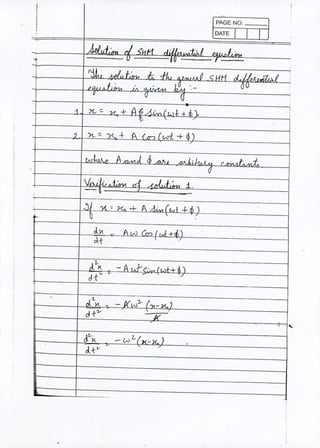 PAGE NO.
DATE
Solution of SHM differential equation
The solution to the general SHM differential
equation is given by :-
1. x = x₀ + A sin(ωt + ϕ).
2. x = x₀ + A cos(ωt + ϕ)
where A and ϕ are arbitrary constants.
Verification of solution 1.
If x = x₀ + A sin(ωt + ϕ)
dx/dt = Aω cos(ωt+ϕ)
d²x/dt² = -Aω² sin(ωt+ϕ)
d²x/dt² = -Aω² (x-x₀)/A
d²x/dt² = -ω²(x-x₀)